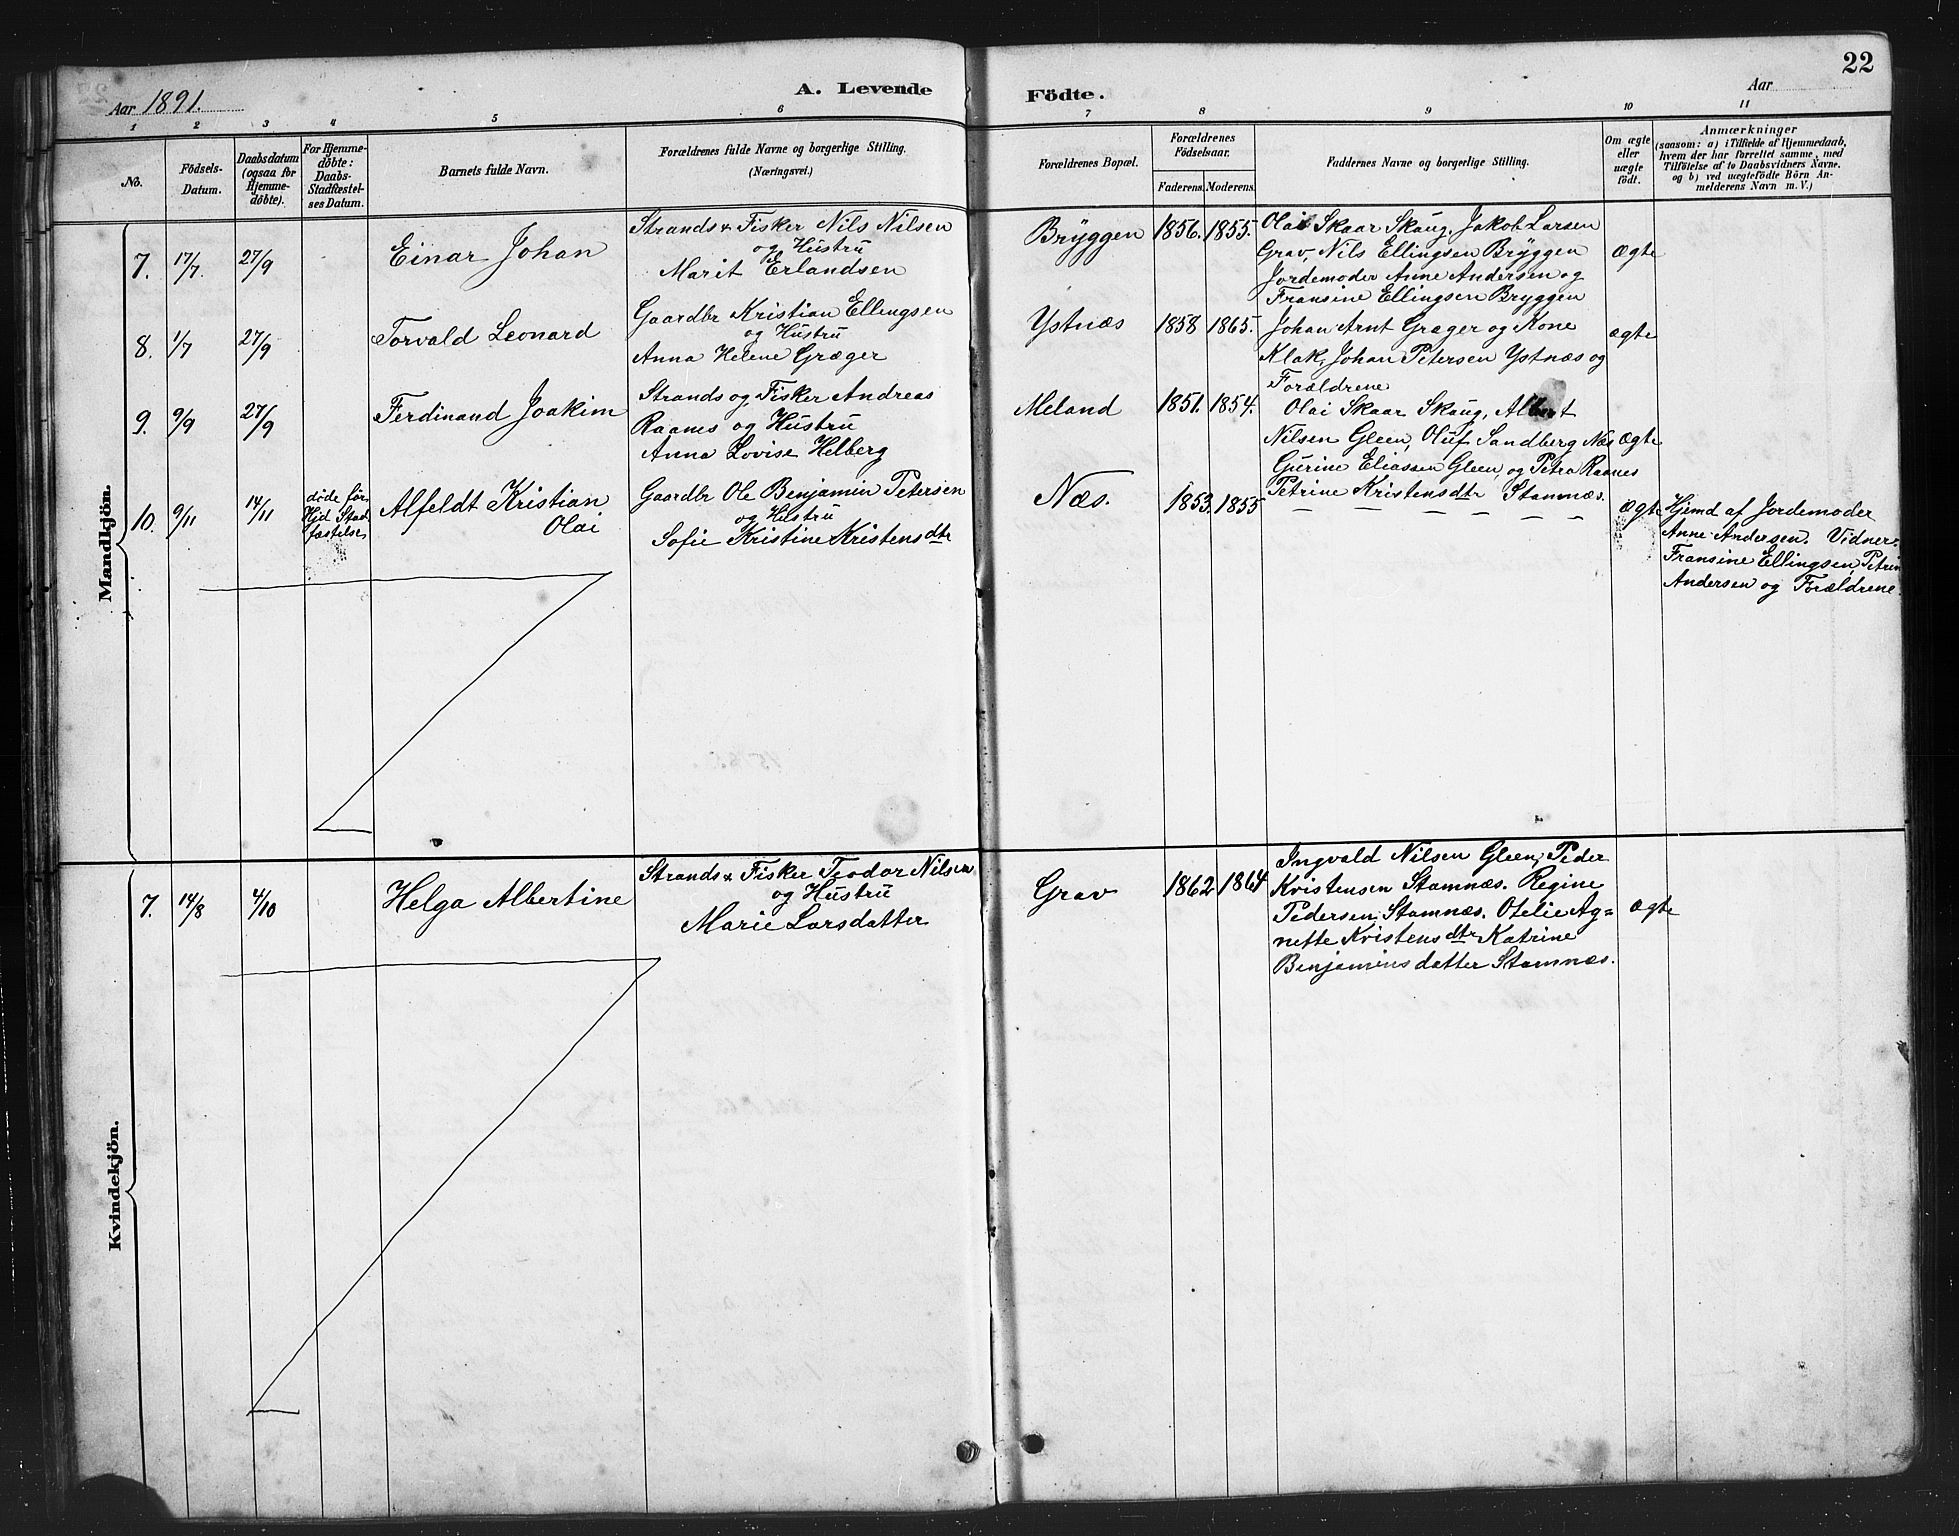 22
Aar 1891.
A. Levende
Födte.
Aar
1 2 3 4 5 6 7 8 9 10 11
No.
Födsels-
Datum.
Daabsdatum
(ogsaa for
Hjemme-
döbte).
For Hjemme-
döbte:
Daabs-
Stadfæstel-
ses Datum.
Barnets fulde Navn.
Forældrenes fulde Navne og borgerlige Stilling.
(Næringsvei.)
Forældrenes Bopæl.
Forældrenes
Födselsaar.
Faderens. Moderens.
Faddernes Navne og borgerlige Stilling.
Om ægte
eller
uægte
födt.
Anmærkninger
(saasom: a) i Tilfælde af Hjemmedaab,
hvem der har forrettet samme, med
Tilföielse af to Daabsvidners Navne.
og b) ved uægtefödte Börn An-
melderens Navn m. V.)
Mandkjön.
7. 17/7. 27/9
Einar Johan
Strands & Fisker Nils Nilsen
og Hustru
Marit Erlandsen
Bryggen 1856. 1855.
Olai Skaar Skaug, Jakob Larsen
Grav, Nils Ellingsen Bryggen
Jordemoder Anne Andersen og
Fransine Ellingsen Bryggen
Ægte
8. 1/7 27/9
Torvald Leonard
Gaardbr Kristian Ellingsen
og Hustru
Anna Helene Græger
Ystnæs 1858 1865.
Johan Arnt Græger og Kone
Klak, Johan Petersen Ystnæs og
Forældrene
ægte
9. 9/9 27/9
Ferdinand Joakim
Strands og Fisker Andreas
Raanes og Hustru
Anna Lovise Helberg
Meland 1851. 1854.
Olai Skaar Skaug, Albert
Nilsen Gleen, Oluf Sandberg Næs
Gurine Eliassen Gleen, og Petra Raanes
Petrine Kristensdtr Stamnæs.
Ægte
10. 9/11 14/11
døde før
Hjd Stad
fæstelse
Alfeldt Kristian
Olai
Gaardbr Ole Benjamin Petersen
og Hustru
Sofie Kristine Kristensdtr
Næs. 1853. 1855
— — — — — —
Ægte
Hjemd af Jordemoder
Anne Andersen. Vidner:
Fransine Ellingsen, Petrin
Andersen og Forældrene.
Kvindekjön.
7. 14/8 4/10
Helga Albertine
Strands & Fisker Teodor Nilsen
og Hustru
Marie Larsdatter
Grav 1862 1864
Ingvald Nilsen Gleen, Peder
Kristensen Stamnæs. Regine
Pedersen Stamnæs. Otelie Ag=
nette Kristensdtr Katrine
Benjaminsdatter Stamnæs.
Ægte